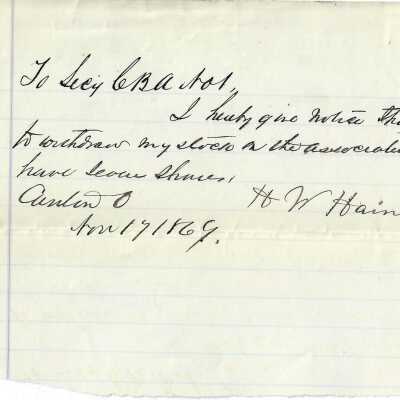 To Secy C B A No 1,
I hereby give notice tha
to withdraw my stock in the associatio
have seven shares,
Canton O H W Hain
Nov 17 1869.